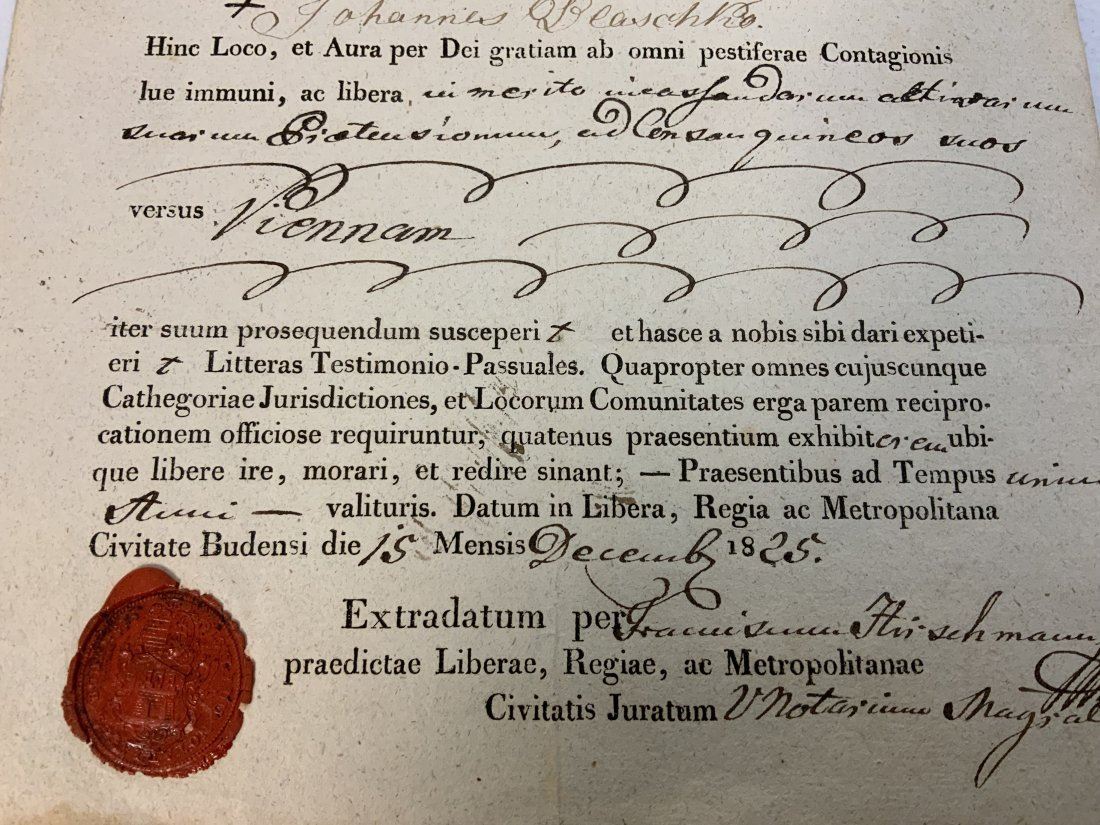 Johannes Blaschko.
Hinc Loco, et Aura per Dei gratiam ab omni pestiferae Contagionis
lue immuni, ac libera, in merito incassandarum activarum
suarum Praetensionum, ad Consanquineos suos
versus Viennam
iter suum prosequendum susceperit et hasce a nobis sibi dari expeti-
erit Litteras Testimonio-Passuales. Quapropter omnes cujuscunque
Cathegoriae Jurisdictiones, et Locorum Comunitates erga parem recipro-
cationem officiose requiruntur, quatenus praesentium exhibitorem ubi-
que libere ire, morari, et redire sinant; — Praesentibus ad Tempus unius
Anni — valituris. Datum in Libera, Regia ac Metropolitana
Civitate Budensi die 15 Mensis Decemb 1825.
Extradatum per Franciscum Hirschmann
praedictae Liberae, Regiae, ac Metropolitanae
Civitatis Juratum V Notarium